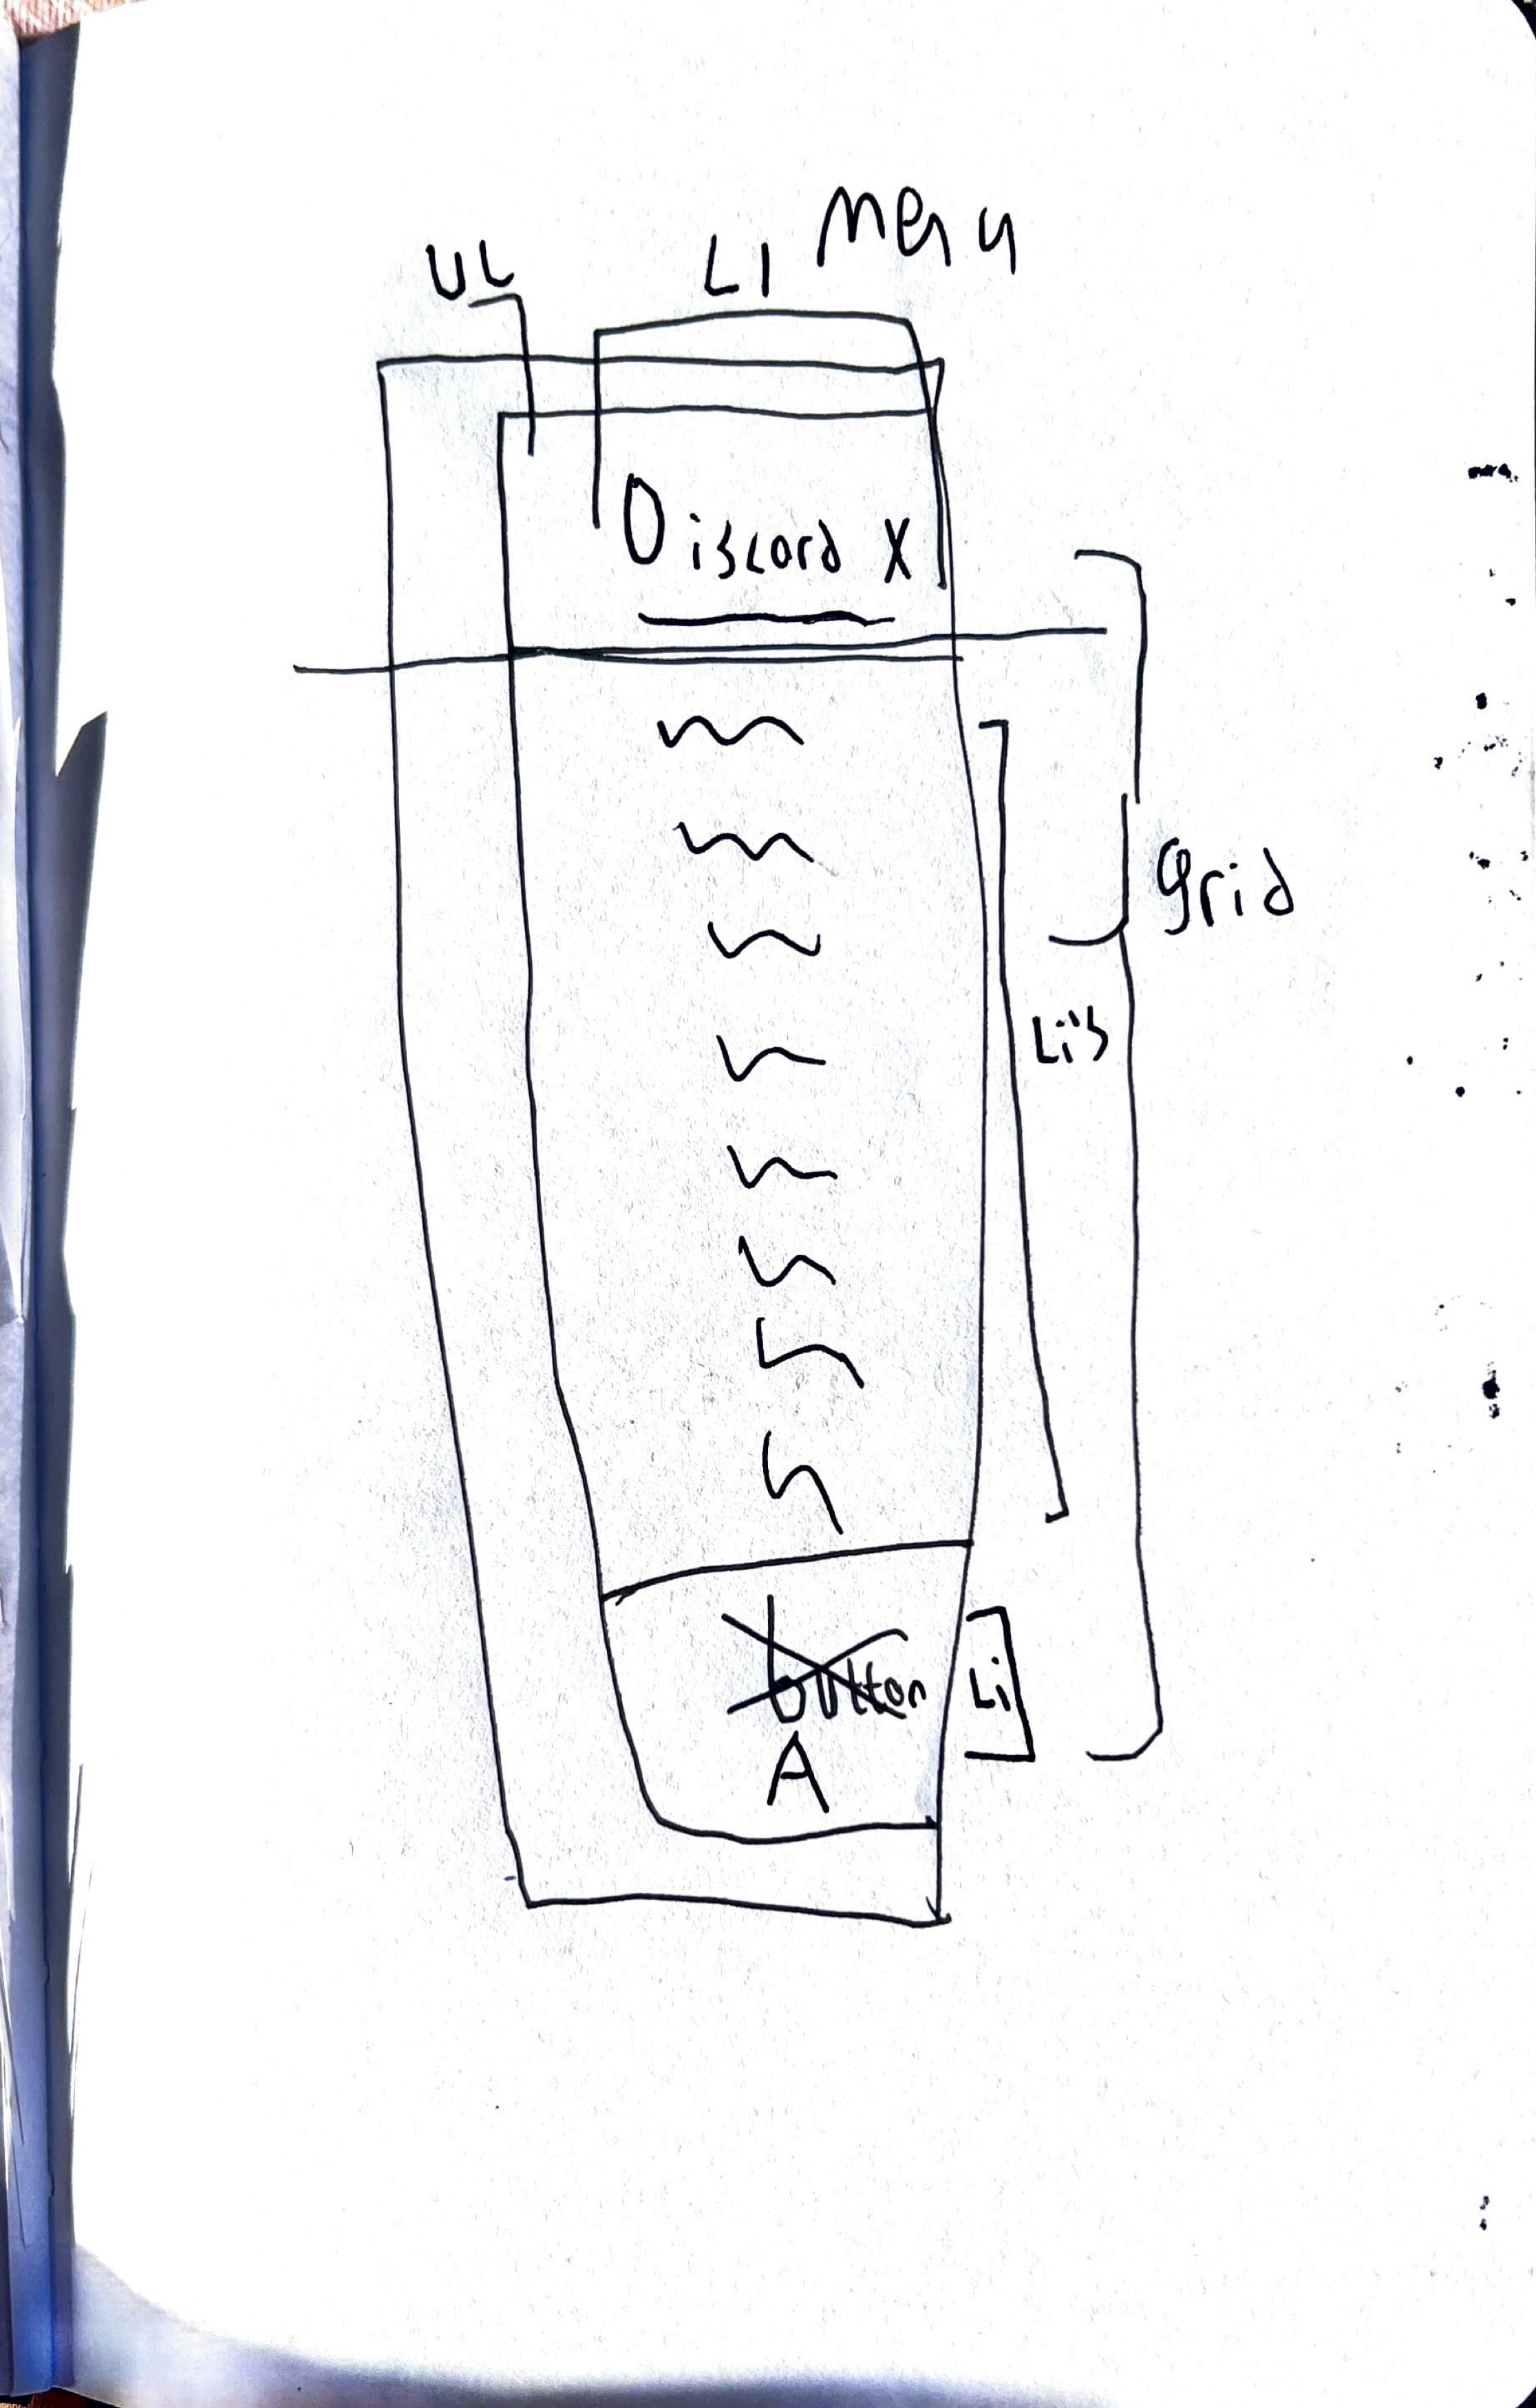 Menu
UL
LI
Discord X
grid
Li's
button
Li
A